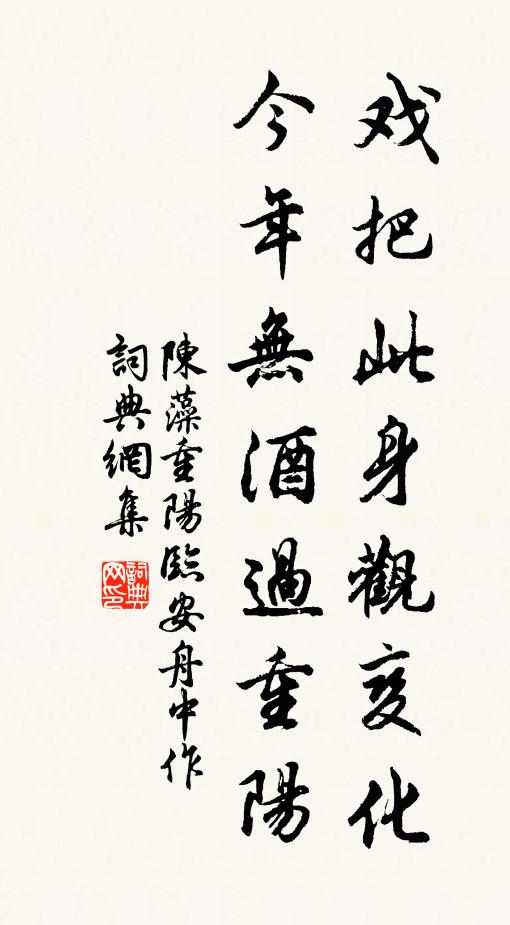 戏把此身觀变化
今年無酒過重陽
陳藻重陽臨安舟中作
詞典網集
詞典网印